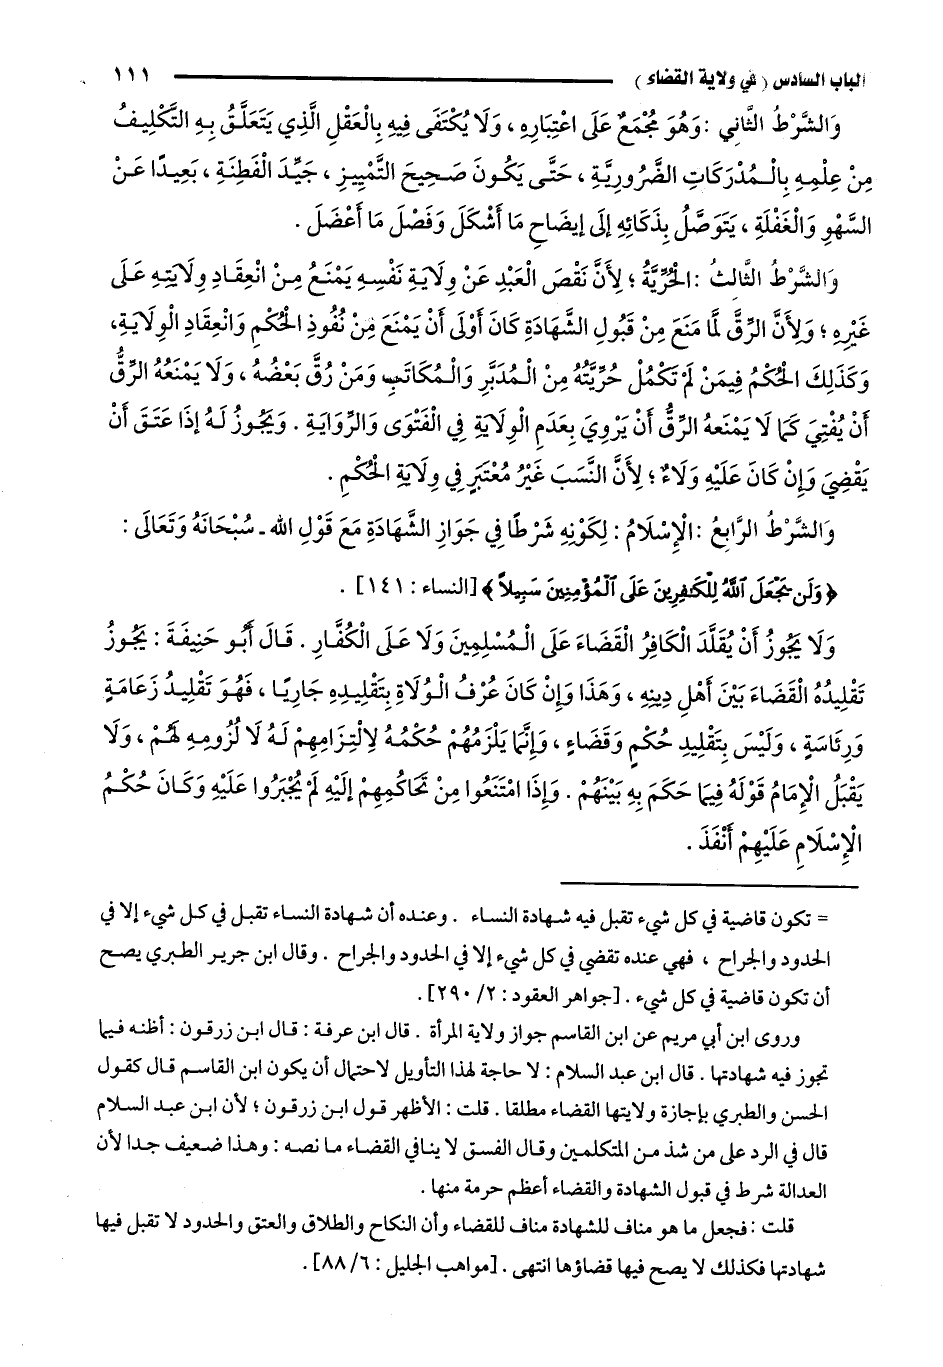 الباب السادس ( في ولاية القضاء ) ١١١
وَالشَّرْطُ الثَّانِي : وَهُوَ مُجْمَعٌ عَلَى اعْتِبَارِهِ ، وَلَا يُكْتَفَى فِيهِ بِالْعَقْلِ الَّذِي يَتَعَلَّقُ بِهِ التَّكْلِيفُ
مِنْ عِلْمِهِ بِالْمُدْرَكَاتِ الضَّرُورِيَّةِ ، حَتَّى يَكُونَ صَحِيحَ التَّمْيِيزِ ، جَيِّدَ الْفَطِنَةِ ، بَعِيدًا عَنْ
السَّهْوِ وَالْغَفْلَةِ ، يَتَوَصَّلُ بِذَكَائِهِ إلَى إيضَاحِ مَا أَشْكَلَ وَفَصْلِ مَا أَعْضَلَ .
وَالشَّرْطُ الثَّالِثُ : الْحُرِّيَّةُ ؛ لِأَنَّ نَقْصَ الْعَبْدِ عَنْ وِلَايَةِ نَفْسِهِ يَمْنَعُ مِنْ انْعِقَادِ وِلَايَتِهِ عَلَى
غَيْرِهِ ؛ وَلِأَنَّ الرِّقَّ لَمَّا مَنَعَ مِنْ قَبُولِ الشَّهَادَةِ كَانَ أَوْلَى أَنْ يَمْنَعَ مِنْ نُفُوذِ الْحُكْمِ وَانْعِقَادِ الْوِلَايَةِ،
وَكَذَلِكَ الْحُكْمُ فِيمَنْ لَمْ تَكْمُلْ حُرِّيَّتُهُ مِنْ الْمُدَبَّرِ وَالْمُكَاتَبِ وَمَنْ رُقَّ بَعْضُهُ ، وَلَا يَمْنَعُهُ الرِّقُّ
أَنْ يُفْتِيَ كَمَا لَا يَمْنَعهُ الرِّقُّ أَنْ يَرْوِيَ بِعَدَمِ الْوِلَايَةِ فِي الْفَتْوَى وَالرِّوَايَةِ . وَيَجُوزُ لَهُ إذَا عَتَقَ أَنْ
يَقْضِيَ وَإِنْ كَانَ عَلَيْهِ وَلَاءٌ ؛ لِأَنَّ النَّسَبَ غَيْرُ مُعْتَبَرٍ فِي وِلَايَةِ الْحُكْمِ .
وَالشَّرْطُ الرَّابِعُ : الْإِسْلَامُ : لِكَوْنِهِ شَرْطًا فِي جَوَازِ الشَّهَادَةِ مَعَ قَوْلِ الله ـ سُبْحَانَهُ وَتَعَالَى :
﴿ وَلَن يَجْعَلَ ٱللَّهُ لِلْكَٰفِرِينَ عَلَى ٱلْمُؤْمِنِينَ سَبِيلاً ﴾ [النساء : ١٤١] .
وَلَا يَجُوزُ أَنْ يُقَلَّدَ الْكَافِرُ الْقَضَاءَ عَلَى الْمُسْلِمِينَ وَلَا عَلَى الْكُفَّارِ . قَالَ أَبُو حَنِيفَةَ : يَجُوزُ
تَقْلِيدُهُ الْقَضَاءَ بَيْنَ أَهْلِ دِينِهِ ، وَهَذَا وَإِنْ كَانَ عُرْفُ الْوُلَاةِ بِتَقْلِيدِهِ جَارِيًا ، فَهُوَ تَقْلِيدُ زَعَامَةٍ
وَرِئَاسَةٍ ، وَلَيْسَ بِتَقْلِيدِ حُكْمٍ وَقَضَاءٍ ، وَإِنَّمَا يَلْزَمُهُمْ حُكْمُهُ لِالْتِزَامِهِمْ لَهُ لَا لُزُومِهِ لَهُمْ ، وَلَا
يَقْبَلُ الْإِمَامُ قَوْلَهُ فِيمَا حَكَمَ بِهِ بَيْنَهُمْ . وَإِذَا امْتَنَعُوا مِنْ تَحَاكُمِهِمْ إلَيْهِ لَمْ يُجْبَرُوا عَلَيْهِ وَكَانَ حُكْمُ
الْإِسْلَامِ عَلَيْهِمْ أَنْفَذَ .
= تكون قاضية في كل شيء تقبل فيه شهادة النساء . وعنده أن شهادة النساء تقبل في كل شيء إلا في
الحدود والجراح ، فهي عنده تقضي في كل شيء إلا في الحدود والجراح . وقال ابن جرير الطبري يصح
أن تكون قاضية في كل شيء . [جواهر العقود : ٢/ ٢٩٠] .
وروى ابن أبي مريم عن ابن القاسم جواز ولاية المرأة . قال ابن عرفة : قال ابن زرقون : أظنه فيما
تجوز فيه شهادتها . قال ابن عبد السلام : لا حاجة لهذا التأويل لاحتمال أن يكون ابن القاسم قال كقول
الحسن والطبري بإجازة ولايتها القضاء مطلقا . قلت : الأظهر قول ابن زرقون ؛ لأن ابن عبد السلام
قال في الرد على من شذ من المتكلمين وقال الفسق لا ينافي القضاء ما نصه : وهذا ضعيف جدا لأن
العدالة شرط في قبول الشهادة والقضاء أعظم حرمة منها .
قلت : فجعل ما هو مناف للشهادة مناف للقضاء وأن النكاح والطلاق والعتق والحدود لا تقبل فيها
شهادتها فكذلك لا يصح فيها قضاؤها انتهى . [مواهب الجليل : ٦/ ٨٨] .